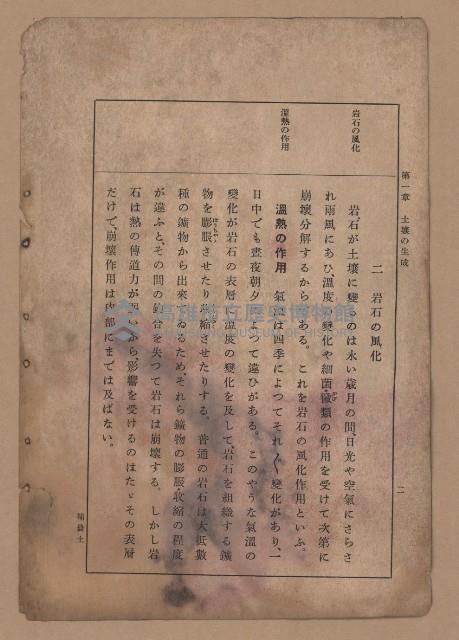 第一章 土壤の生成
二
岩石の風化
溫熱の作用
二 岩石の風化
岩石が土壤に變るのは永い歲月の間、日光や空氣にさらさ
れ雨風にあひ、溫度の變化や細菌・黴類の作用を受けて次第に
崩壞分解するからである。これを岩石の風化作用といふ。
溫熱の作用 氣溫は四季によつてそれ〴〵變化があり、一
日中でも晝夜朝夕によつて違ひがある。このやうな氣溫の
變化が岩石の表層に溫度の變化を及して、岩石を組織する鑛
物を膨脹させたり收縮させたりする。普通の岩石は大低數
種の鑛物から出來てゐるため、それら鑛物の膨脹・收縮の程度
が違ふと、その間の結合を失つて岩石は崩壞する。しかし岩
石は熱の傳道力が弱いから、影響を受けるのはたゞその表層
だけで、崩壞作用は內部にまでは及ばない。
高雄市立歷史博物館
KAOHSIUNG MUSEUM OF HISTORY